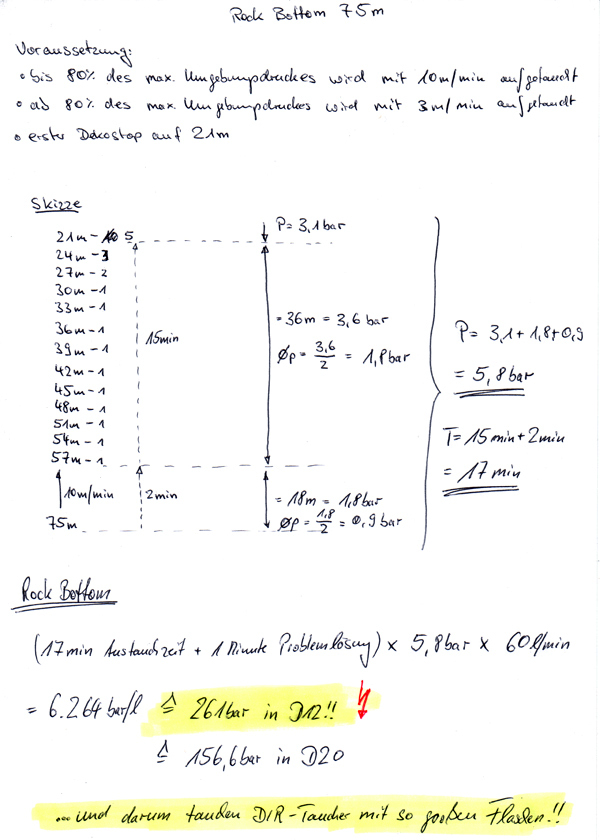 Rock Bottom 75m
Voraussetzung:
• bis 80% des max. Umgebungsdruckes wird mit 10m/min aufgetaucht
• ab 80% des max. Umgebungsdruckes wird mit 3m/min aufgetaucht
• erster Dekostop auf 21m
Skizze
21m - 5
24m - 3
27m - 2
30m - 1
33m - 1
36m - 1
39m - 1
42m - 1
45m - 1
48m - 1
51m - 1
54m - 1
57m - 1
10m/min
75m
15min
2min
P = 3,1bar
= 36m = 3,6 bar
Øp = 3,6/2 = 1,8bar
= 18m = 1,8bar
Øp = 1,8/2 = 0,9bar
P = 3,1+1,8+0,9
= 5,8bar
T = 15min + 2min
= 17min
Rock Bottom
(17min Austauchzeit + 1 Minute Problemlösung) × 5,8bar × 60l/min
= 6.264 bar/l ≙ 261bar in D12!!
≙ 156,6bar in D20
...und darum tauchen DIR-Taucher mit so großen Flaschen!!